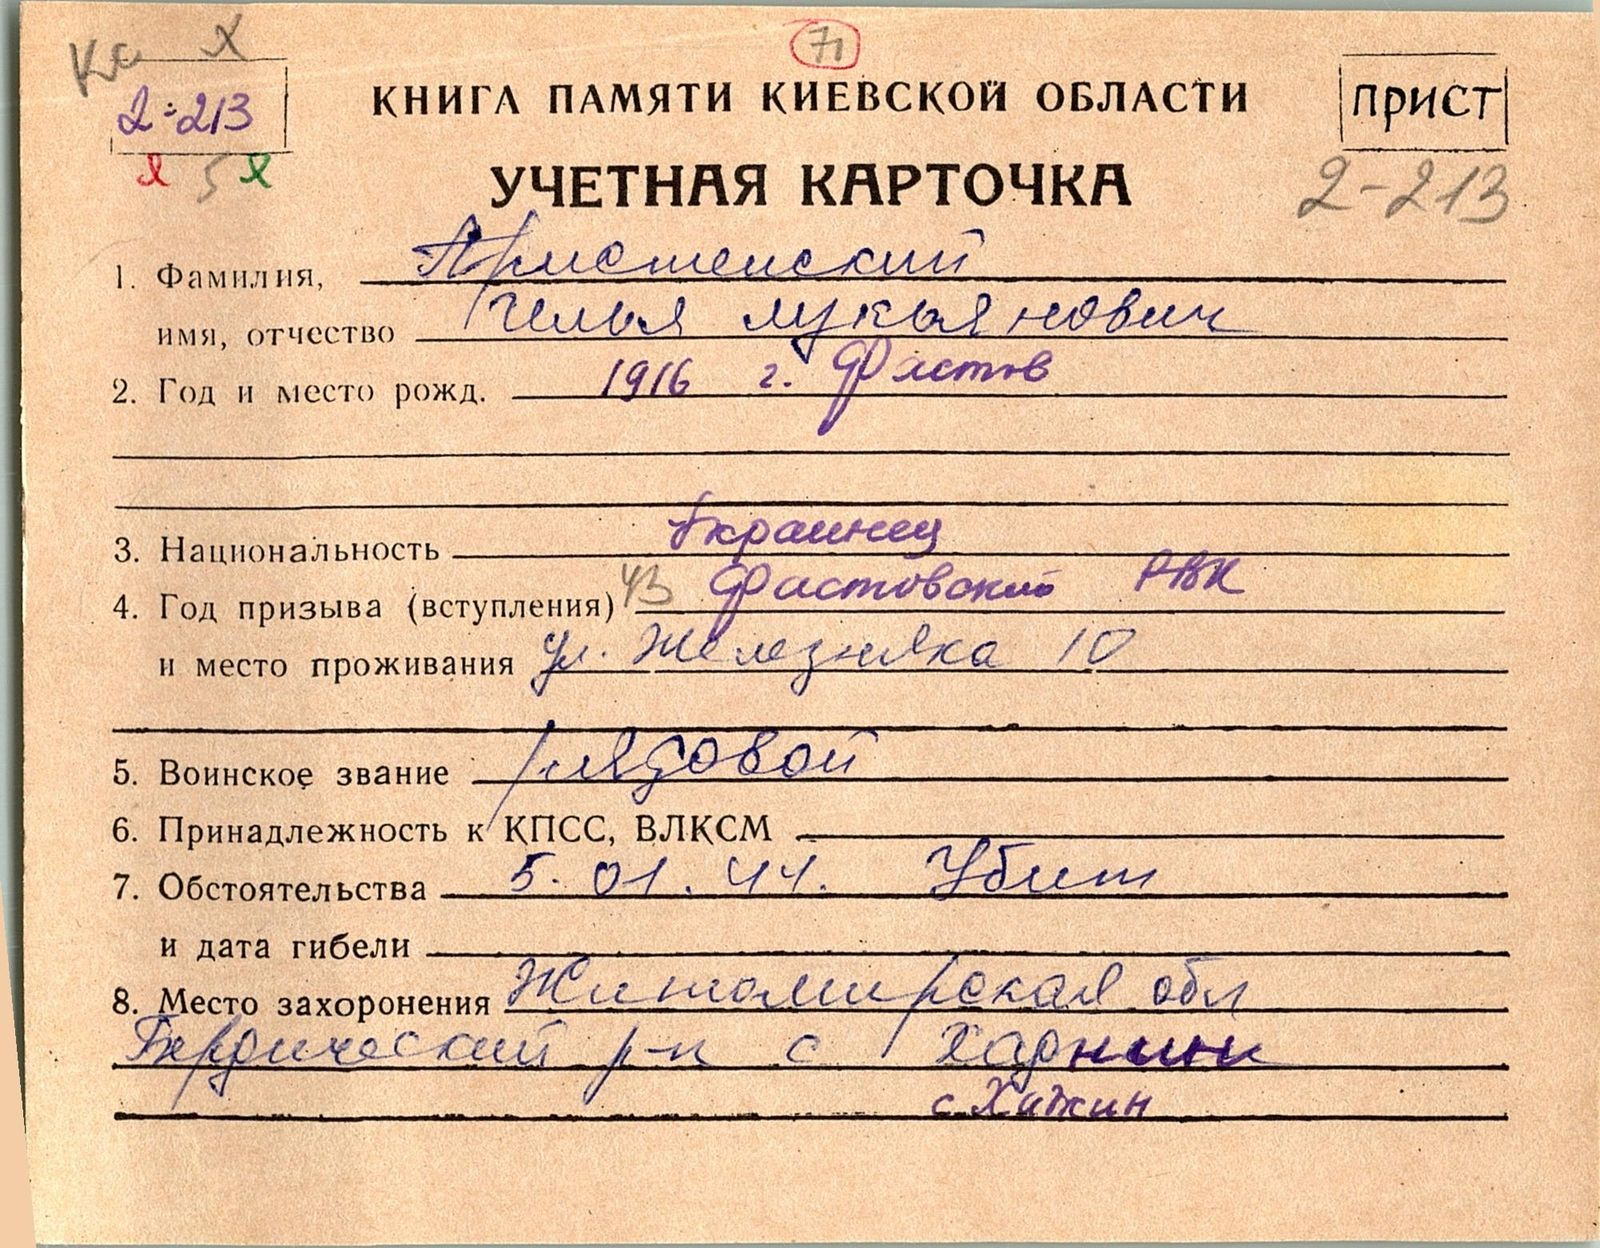 Ка Х
71
2-213
КНИГА ПАМЯТИ КИЕВСКОЙ ОБЛАСТИ
ПРИСТ
х 5 х
УЧЕТНАЯ КАРТОЧКА
2-213
1. Фамилия, Пристенский
имя, отчество Илья Лукьянович
2. Год и место рожд. 1916 г. Фастов
3. Национальность Украинец
4. Год призыва (вступления) 43 Фастовский РВК
и место проживания ул. Железняка 10
5. Воинское звание рядовой
6. Принадлежность к КПСС, ВЛКСМ
7. Обстоятельства 5.01.44. Убит
и дата гибели
8. Место захоронения Житомирская обл
Бердический р-н с
с. Хажин